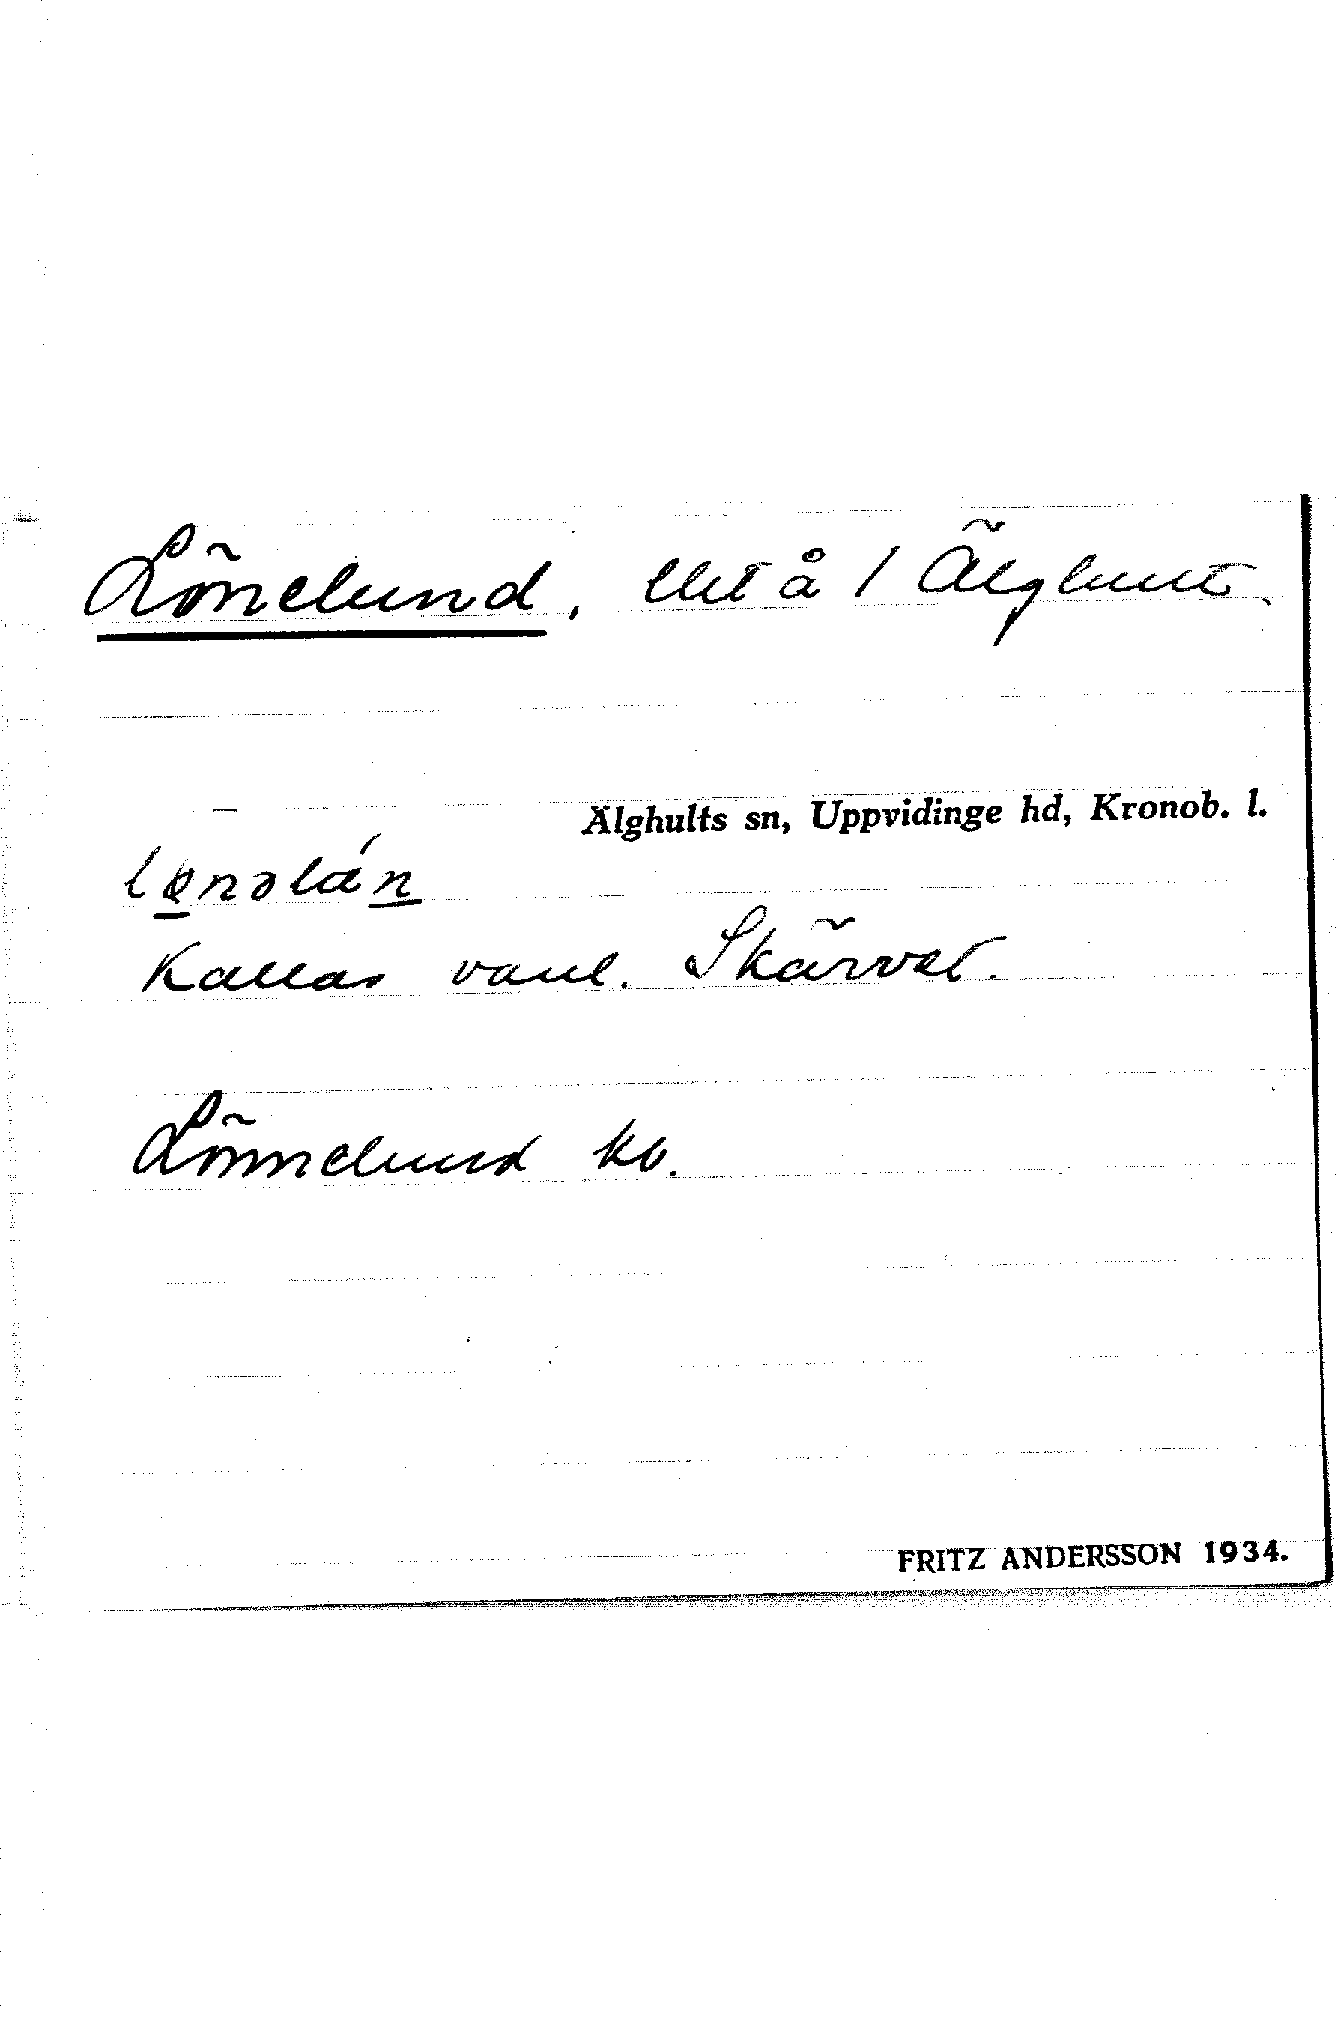 Lönelund, lht å 1 Älghult.
Älghults sn, Uppvidinge hd, Kronob. l.
lønəlán
Kallas vanl. Skärvet.
Lönnelund kb.
FRITZ ANDERSSON 1934.